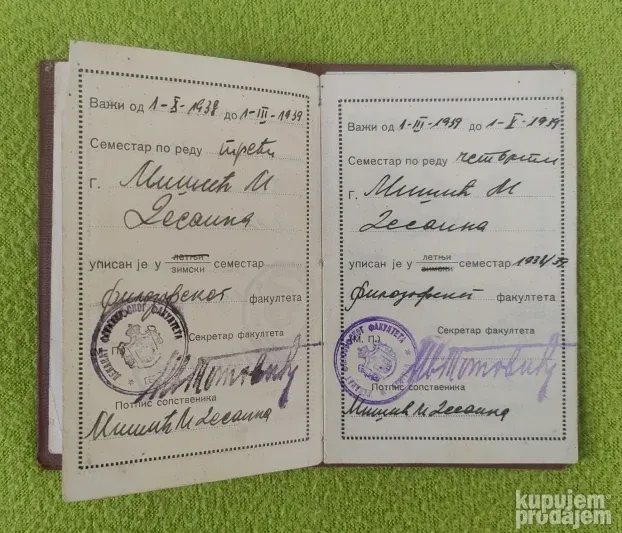 Важи од 1-X-1938 до 1-III-1939
Семестар по реду трећи
г. Мишић М
Десанка
уписан је у летњи зимски семестар
филозофског факултета
Секретар факултета
Потпис сопственика
Мишић М Десанка
Важи од 1-III-1939 до 1-X-1939
Семестар по реду четврти
г. Мишић М
Десанка
уписан је у летњи зимски семестар 1938/39
филозофског факултета
Секретар факултета
М. П.
Потпис сопственика
Мишић М Десанка
kupujem
prodajem